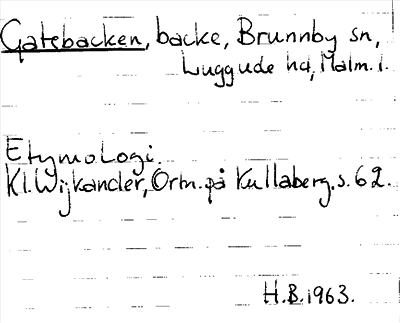 Gatebacken, backe, Brunnby sn,
Luggude hd, Malm. l.
Etymologi.
Kl. Wijkander, Ortn. på Kullaberg. s. 62.
H.B. 1963.